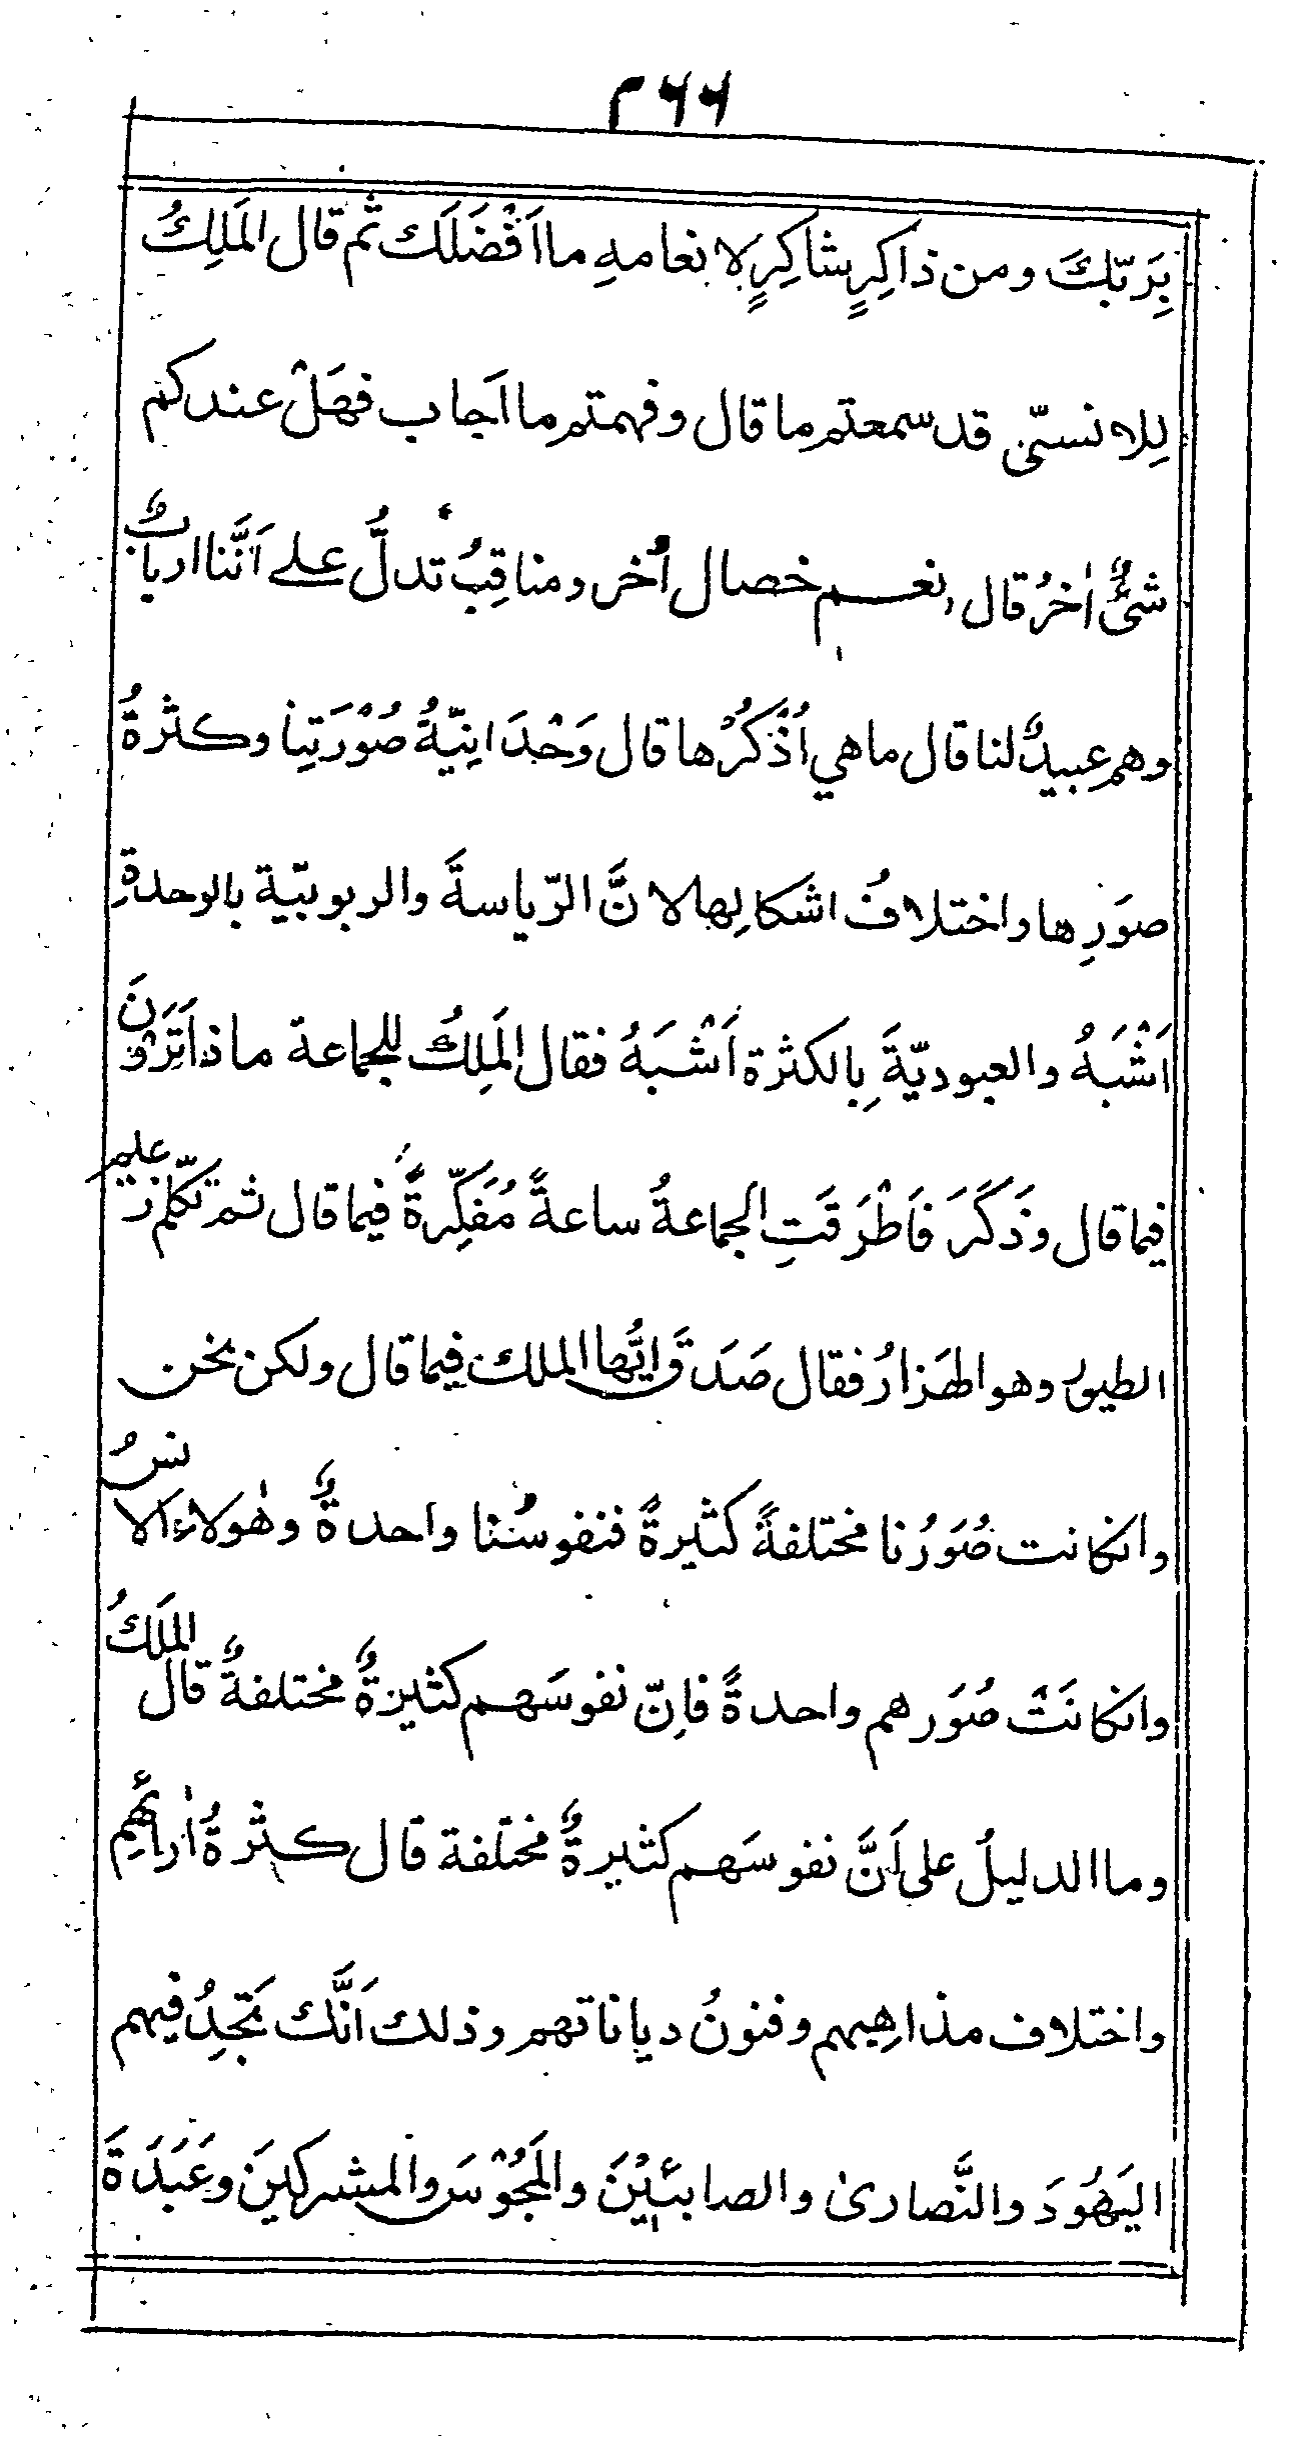 ٢٦٦
بِرَبّكَ ومن ذاكِرٍ شاكِرٍ لا نعامهِ ما اَفْضَلَك ثم قال المَلِكُ
لِلانسىّ قد سمعتم ما قال وفهمتم ما اَجاب فهَلْ عندكم
شئٌ اٰخرُ قال نعم خصال اُخر ومناقِبُ تدلُّ علے اَنَّنا اربابٌ
وهم عبيدٌ لنا قال ما هي اُذْكُرْها قال وَحْدَانِيّةُ صُوْرَتِنا وكثرةُ
صوَرِها واختلافُ اشكالِها لانَّ الرّياسةَ والربوبيّة بالوحدةِ
اَشْبَهُ والعبوديّةَ بِالكثرة اَشْبَهُ فقال المَلِكُ للجماعة ماذا تَرَوْنَ
فيما قال وذَكَرَ فَاَطْرَقَتِ الجماعةُ ساعةً مُفَكِّرةً فيما قال ثم تكلّم زعيم
الطيور وهو الهَزارُ فقال صَدَقَ ايُّها الملك فيما قال ولكن نحن
وانكانت صُوَرُنا مختلفةً كثيرةً فنفوسُنا واحدةٌ وهٰولاءِ الانسُ
وانكانَتْ صُوَرهم واحدةً فاِنّ نفوسَهم كثيرةٌ مختلفةٌ قال المَلِكُ
وما الدليلُ على اَنَّ نفوسَهم كثيرةٌ مختلفة قال كثرةُ اٰرائهِم
واختلاف مذاهِبهم وفنونُ دياناتهم وذلك اَنَّك تَجِدُ فيهم
اليَهُودَ والنَّصارىٰ والصابئِيْنَ والمَجُوْسَ والمشركِينَ وعَبَدَةَ